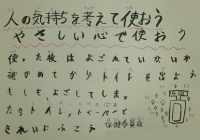 人の気持ちを考えて使おう
やさしい心で使おう
使った後はよごれていないか
確かめてからトイレを出よう
もしもよごしてしまっ
たらトイレットペーパーで
きれいにふこう
保健委員会